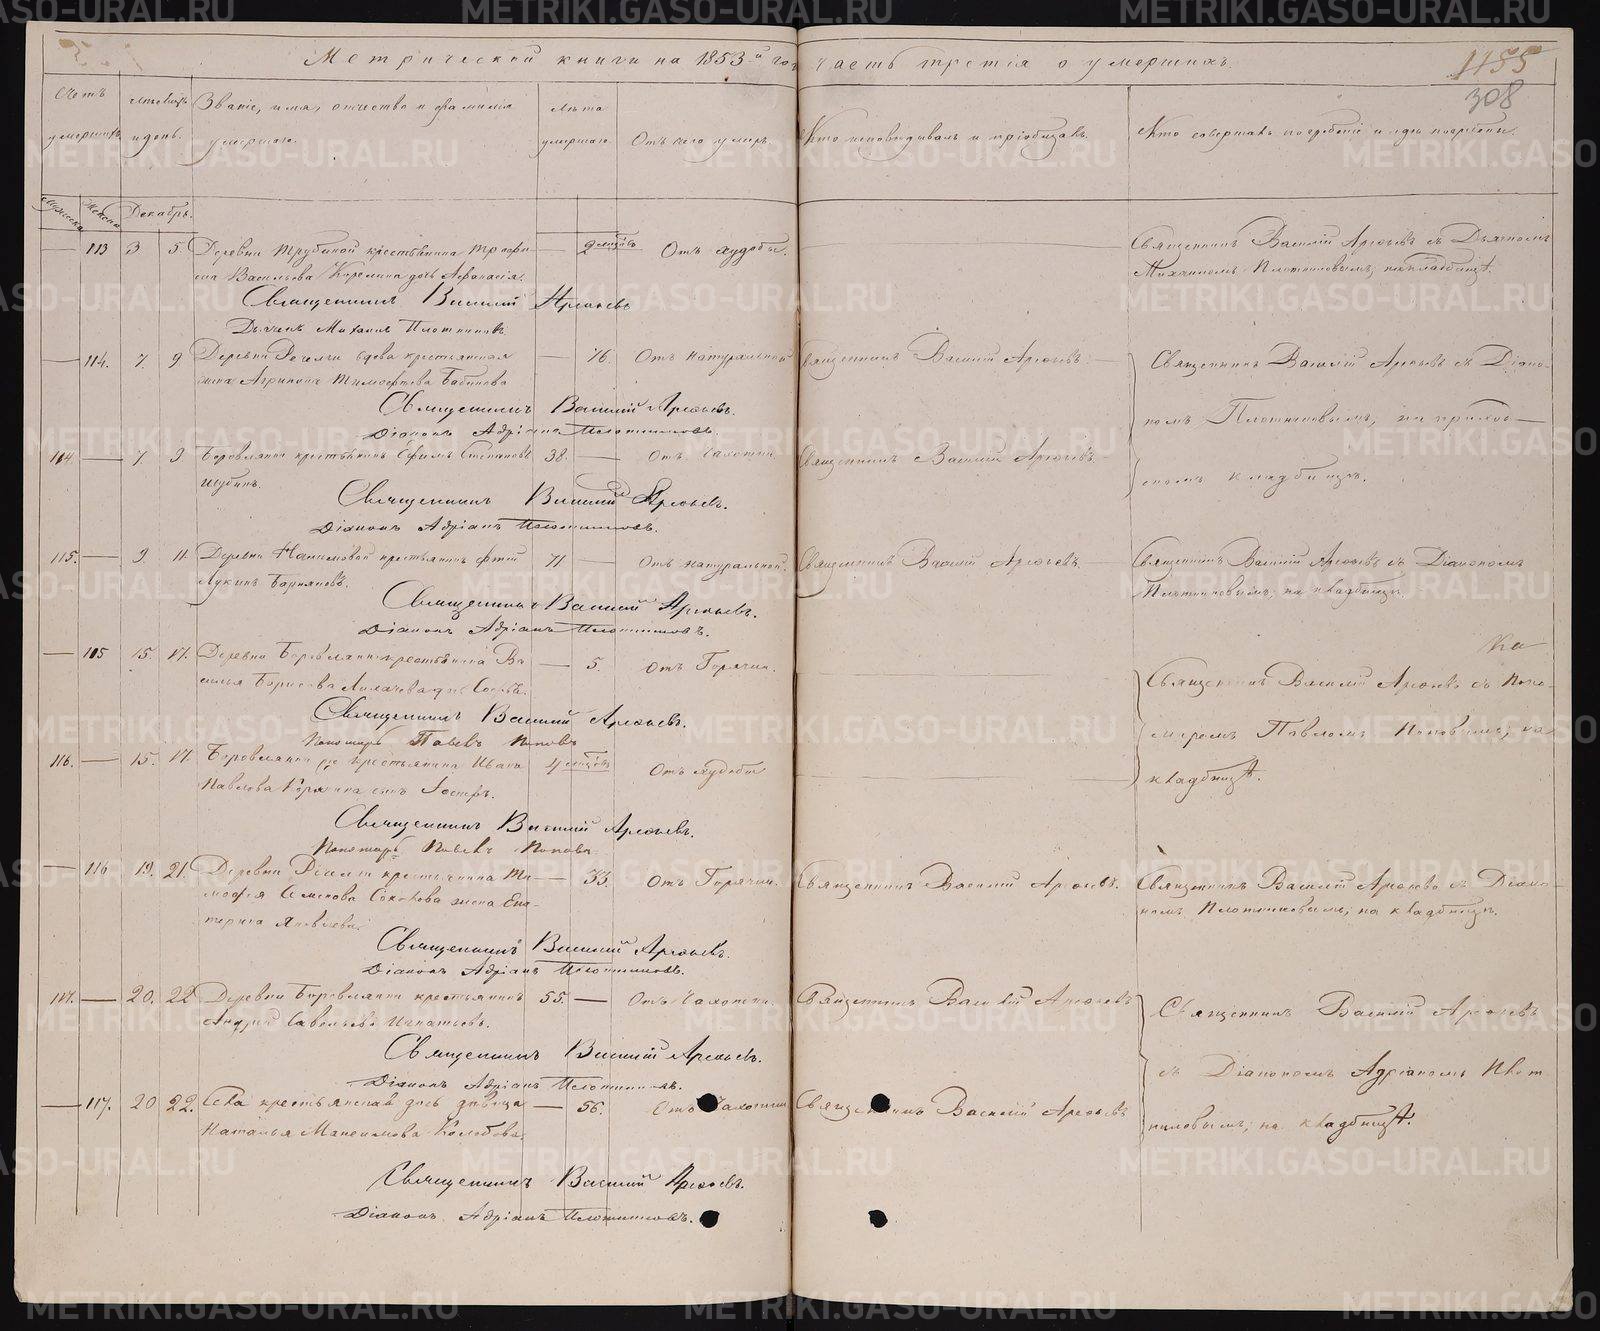 Метрической книги на 1853й годъ часть третія о умершихъ.
1155
308
Счетъ умершихъ
Мѣсяцъ и день.
Званіе, имя, отчество и фамилія умершаго.
Лѣта умершаго
Отъ чего умеръ.
Кто исповѣдывалъ и пріобщалъ.
Кто совершалъ погребеніе и гдѣ погребены.
Мужеска Женска Декабрь.
— 113 3 5. Деревни Трубиной крестьянина Трофи-
— 2 мѣсяцовъ Отъ худобы.
Священникъ Василій Арефьевъ съ Дьячкомъ
ма Васильева дочь Афанасія.
Михаиломъ Плотниковымъ, на кладбищѣ.
Священникъ Василій Арефьевъ
Дьячекъ Михаилъ Плотниковъ
— 114. 7. 9 Деревни Речелги вдова крестьянская
— 76. Отъ натуральной
Священникъ Василій Арефьевъ
Священникъ Василій Арефьевъ съ Діако-
Агрипина Тимофеева Бабинова
Священникъ Василій Арефьевъ.
номъ Плотниковымъ, на приход-
Діаконъ Адріанъ Плотниковъ.
114. — 7. 9 Боровлянки крестьянинъ Ефимъ Степановъ
38. — Отъ Чахотки
Священникъ Василій Арефьевъ.
скомъ кладбищѣ.
Шубинъ.
Священникъ Василій Арефьевъ.
Діаконъ Адріанъ Плотниковъ.
115. — 9 11. Деревни крестьянинъ
71 — Отъ натуральной.
Священникъ Василій Арефьевъ.
Священникъ Василій Арефьевъ съ Діакономъ
Лукинъ
Плотниковымъ, на кладбищѣ.
Священникъ Василій Арефьевъ.
Діаконъ Адріанъ Плотниковъ.
— 115 15. 17. Деревни Боровлянки крестьянина Ва-
— 5. Отъ Горячки.
на
силья Борисова дочь
Священникъ Василій Арефьевъ съ Поно-
Священникъ Василій Арефьевъ.
Пономарь Павелъ Поповъ
маремъ Павломъ Поповымъ, на
116. — 15. 17. Боровлянки крестьянина Ивана
4 мѣсяцовъ Отъ худобы
кладбищѣ.
Павлова сынъ Іосифъ.
Священникъ Василій Арефьевъ.
Пономарь Павелъ Поповъ
— 116 19. 21. Деревни Речелги крестьянина Ти-
— 33. Отъ Горячки.
Священникъ Василій Арефьевъ.
Священникъ Василій Арефьевъ съ Діако-
мофея Семенова Соколова жена Ека-
номъ Плотниковымъ, на кладбищѣ.
терина Яковлева.
Священникъ Василій Арефьевъ.
Діаконъ Адріанъ Плотниковъ.
117. — 20. 22 Деревни Боровлянки крестьянинъ
55. — Отъ Чахотки.
Священникъ Василій Арефьевъ
Священникъ Василій Арефьевъ
Андрей Савельевъ Игнатьевъ.
Священникъ Василій Арефьевъ.
съ Діакономъ Адріаномъ Плот-
Діаконъ Адріанъ Плотниковъ.
— 117. 20 22. Села крестьянская дочь дѣвица
— 56. Отъ Чахотки
Священникъ Василій Арефьевъ
никовымъ, на кладбищѣ.
Наталья Максимова Колобова.
Священникъ Василій Арефьевъ.
Діаконъ Адріанъ Плотниковъ.
METRIKI.GASO-URAL.RU